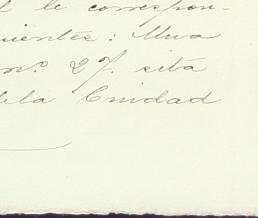 l le correspon-
uientes: Una
nº 27. sitá
dela Cuidad